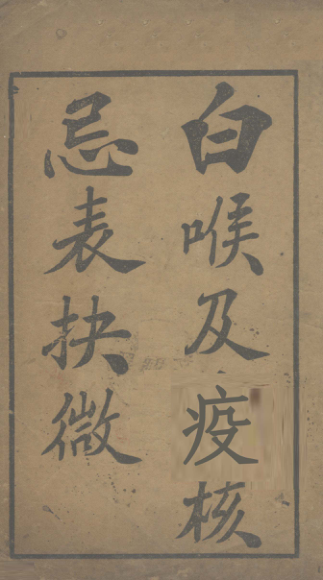 白喉及疫核
忌表抉微